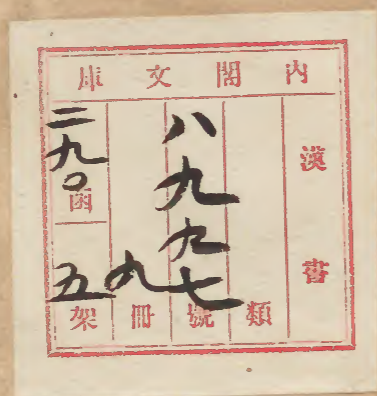 內閣文庫
漢書
類
八九九七號
九冊
二九〇函
五架